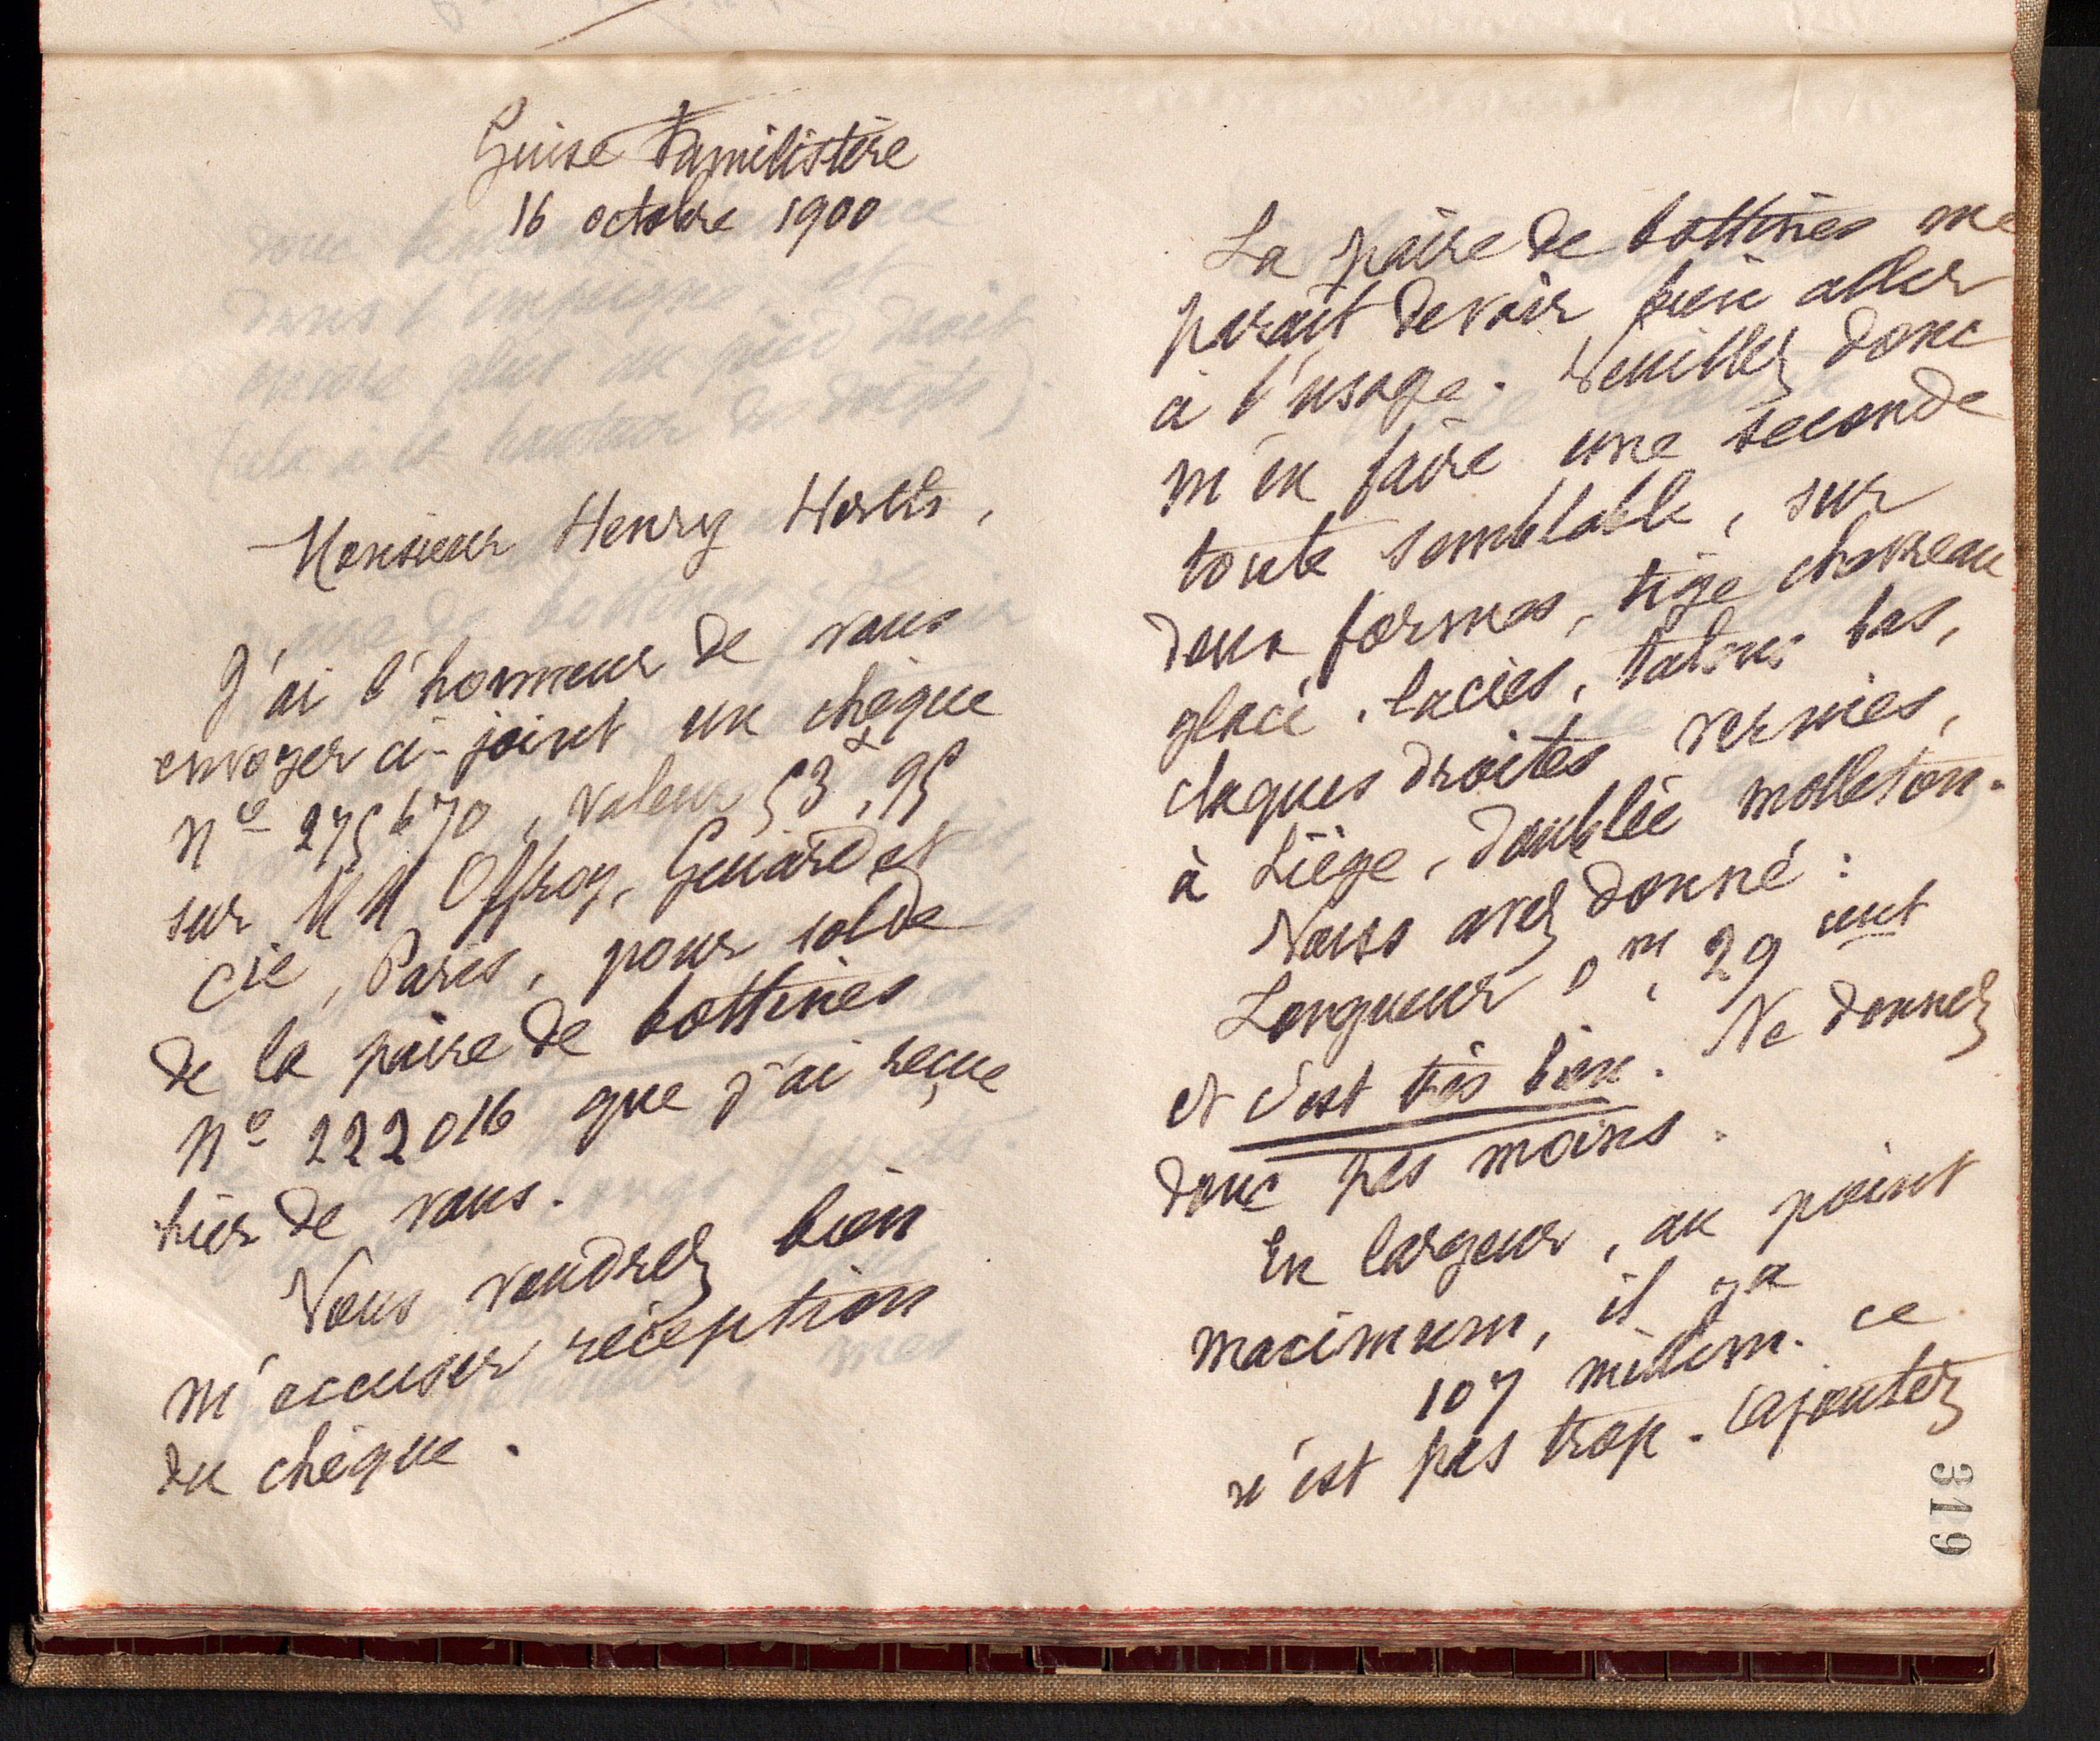 Guise Familistère
16 octobre 1900
Monsieur Henry
J'ai l'honneur de vous
envoyer ci-joint un chèque
N° 275670, valeur 53f,95
sur MM Offroy, Guiard et
Cie, Paris, pour solde
de la paire de bottines
N° 222016 que j'ai reçue
hier de vous.
Vous voudrez bien
m'accuser réception
du chèque.
La paire de bottines me
parait devoir bien aller
à l'usage. Veuillez donc
m'en faire une seconde
toute semblable, sur
deux formes, tige chevreau
glacé, lacées, talons bas,
claques droites vernies,
à Liège, doublée molleton.
Vous avez donné :
Longueur 0m,29 cent
et c'est très bien. Ne donnez
donc pas moins.
En largeur, au point
maximum, il y a
107 millim. ce
n'est pas trop. Ajoutez
319